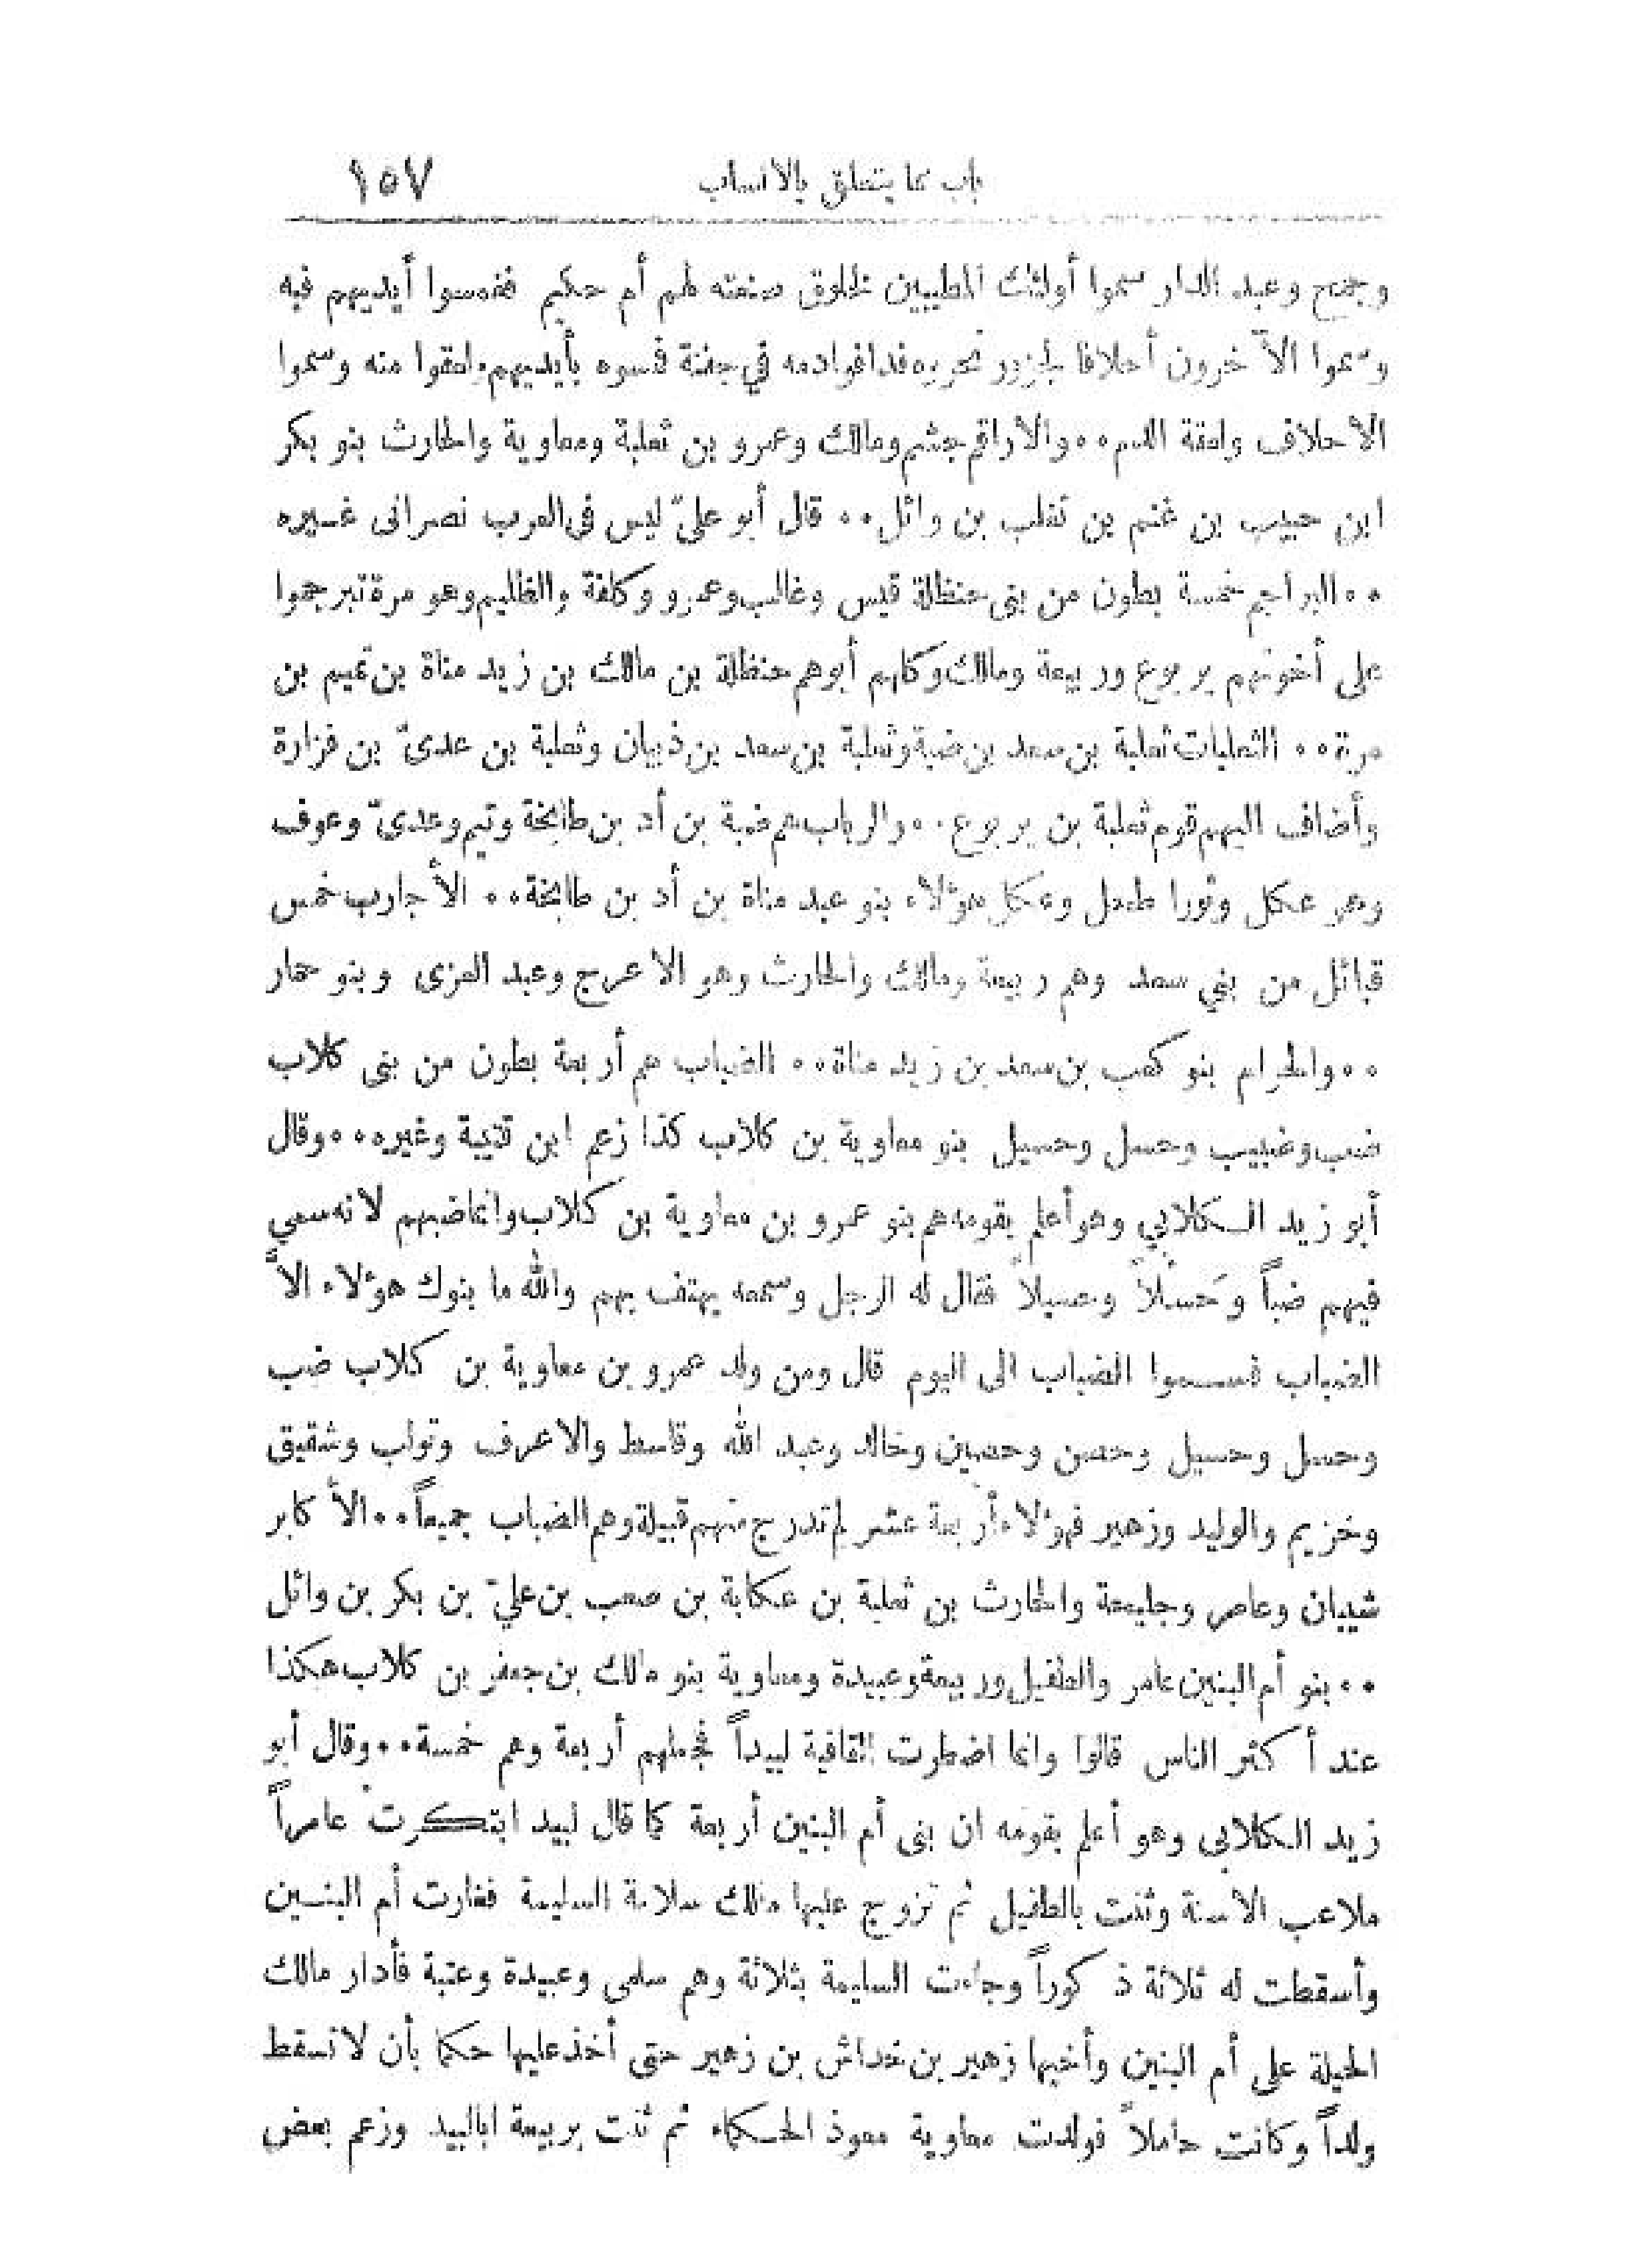 باب مما يتعلق بالانساب ١٥٧
وجمح وعبد الدار سموا أولئك المطيبين لخلوق صنعته لهم أم حكيم فغمسوا أيديهم فيه
وسموا الآخرون أحلافا لجزور نحروه فدافوا دمه في جفنة فمسوه بأيديهم ولعقوا منه وسموا
الاحلاف ولعقة الدم ٠٠ والاراقم جشم ومالك وعمرو بن ثعلبة ومعاوية والحارث بنو بكر
ابن حبيب بن غنم بن تغلب بن وائل ٠٠ قال أبو عليّ ليس فى العرب نصرانى غيره
٠٠ البراجم خمسة بطون من بنى حنظلة قيس وغالب وعمرو وكلفة والظليم وهو مرة تبرجموا
على أخوتهم يربوع وربيعة ومالك وكلهم أبوهم حنظلة بن مالك بن زيد مناة بن تميم بن
مرة ٠٠ الثعلبات ثعلبة بن سعد بن ضبة وثعلبة بن سعد بن ذبيان وثعلبة بن عدىّ بن فزارة
وأضاف اليهم قوم ثعلبة بن يربوع ٠٠ والرباب هم ضبة بن أد بن طابخة وتيم وعدىّ وعوف
وهو عكل وثورا طحل وعكل هؤلاء بنو عبد مناة بن أد بن طابخة ٠٠ الأجارب خمس
قبائل من بني سعد وهم ربيعة ومالك والحارث وهو الاعرج وعبد العزى وبنو حمار
٠٠ والحرام بنو كعب بن سعد بن زيد مناة ٠٠ الضباب هم أربعة بطون من بنى كلاب
ضب وضبيب وحسل وحسيل بنو معاوية بن كلاب كذا زعم ابن قتيبة وغيره ٠٠ وقال
أبو زيد الكلابي وهو أعلم بقومه هم بنو عمرو بن معاوية بن كلاب وانما ضبهم لانه سمي
فيهم ضباً وحَسلاً وحسيلاً فقال له الرجل وسمعه يهتف بهم والله ما بنوك هؤلاء الاَّ
الضباب فسموا الضباب الى اليوم قال ومن ولد عمرو بن معاوية بن كلاب ضب
وحسل وحسيل وحصن وحصين وخالد وعبد الله وقاسط والاعرف وتولب وشقيق
وخزيم والوليد وزهير فهؤلاء أربعة عشر لم تدرج منهم قبيلة وهم الضباب جميعاً ٠٠ الأكابر
شيبان وعامر وجليحة والحارث بن ثعلبة بن عكابة بن صعب بن عليّ بن بكر بن وائل
٠٠ بنو أم البنين عامر والطفيل وربيعة وعبيدة ومعاوية بنو مالك بن جعفر بن كلاب هكذا
عند أكثر الناس قالوا وانما اضطرت القافية لبيداً فجعلهم أربعة وهم خمسة ٠٠ وقال أبو
زيد الكلابى وهو أعلم بقومه ان بنى أم البنين أربعة كما قال لبيد ابتكرت عامراً
ملاعب الاسنة وثنت بالطفيل ثم تزوج عليها مالك سلامة السليمة فغارت أم البنين
وأسقطت له ثلاثة ذكوراً وجاءت السليمة بثلاثة وهم سلمى وعبيدة وعتبة فأدار مالك
الحيلة على أم البنين وأخيها زهير بن خداش بن زهير حتى أخذ عليها حكما بأن لا تسقط
ولداً وكانت حاملاً فولدت معاوية معوذ الحكماء ثم ثنت بربيعة ابا لبيد وزعم بعض